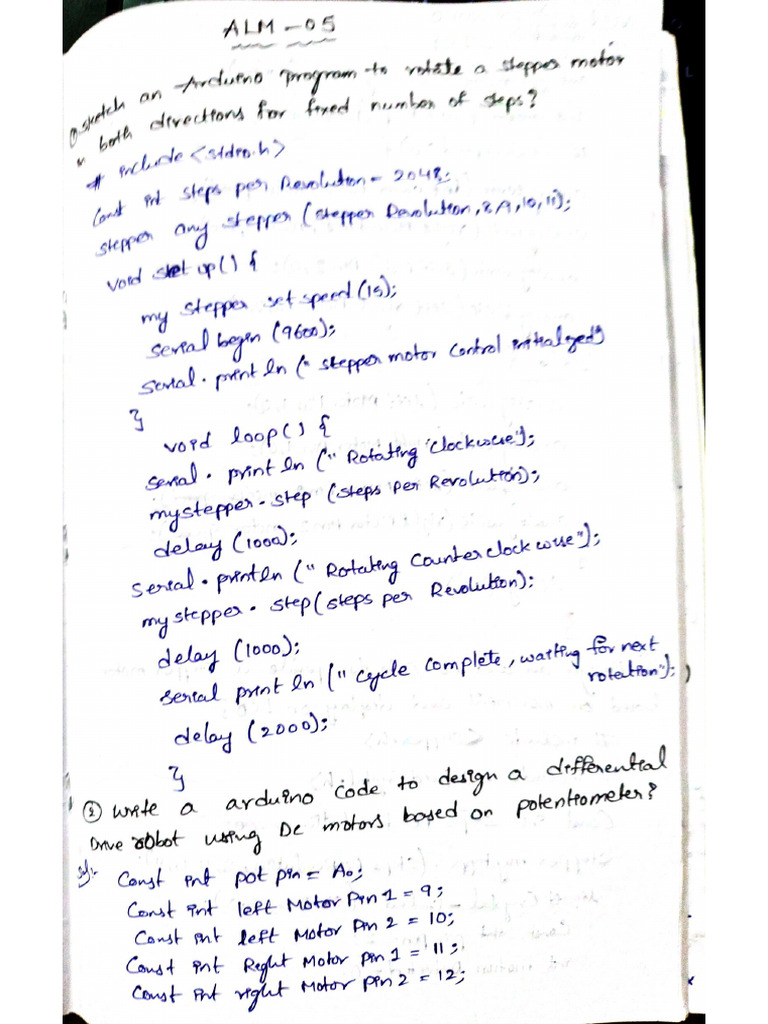 ALM - 05
① sketch an Arduino program to rotate a stepper motor
in both directions for fixed number of steps?
# include <stdio.h>
Const int steps per Revolution = 2048;
stepper any stepper (stepper Revolution, 8,9,10,11);
void set up() {
my stepper set speed (15);
serial begin (9600);
serial. print ln (" stepper motor control initialzed")
}
void loop() {
serial. print ln (" Rotating clockwise");
mystepper. step (steps per Revolution);
delay (1000);
serial. println (" Rotating Counter clock wise");
my stepper. step (steps per Revolution);
delay (1000);
serial print ln (" cycle complete, waiting for next
rotection");
delay (2000);
}
② write a arduino code to design a differential
Drive robot using Dc motors based on potentiometer?
Sol:- Const int pot pin = A0;
Const int left Motor Pin 1 = 9;
Const int left Motor Pin 2 = 10;
Const int Right Motor pin 1 = 11;
Const int right Motor pin 2 = 12;